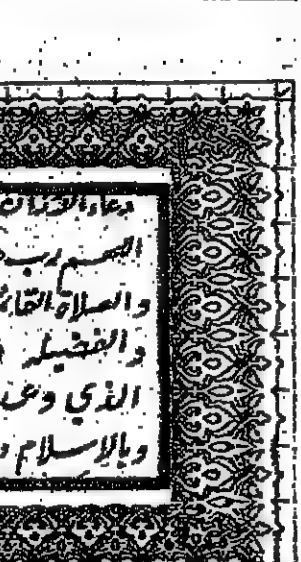 دعاء الاذان
اللهم رب
والصلاة القائ
والفضيلة
الذي وعد
وبالإسلام د